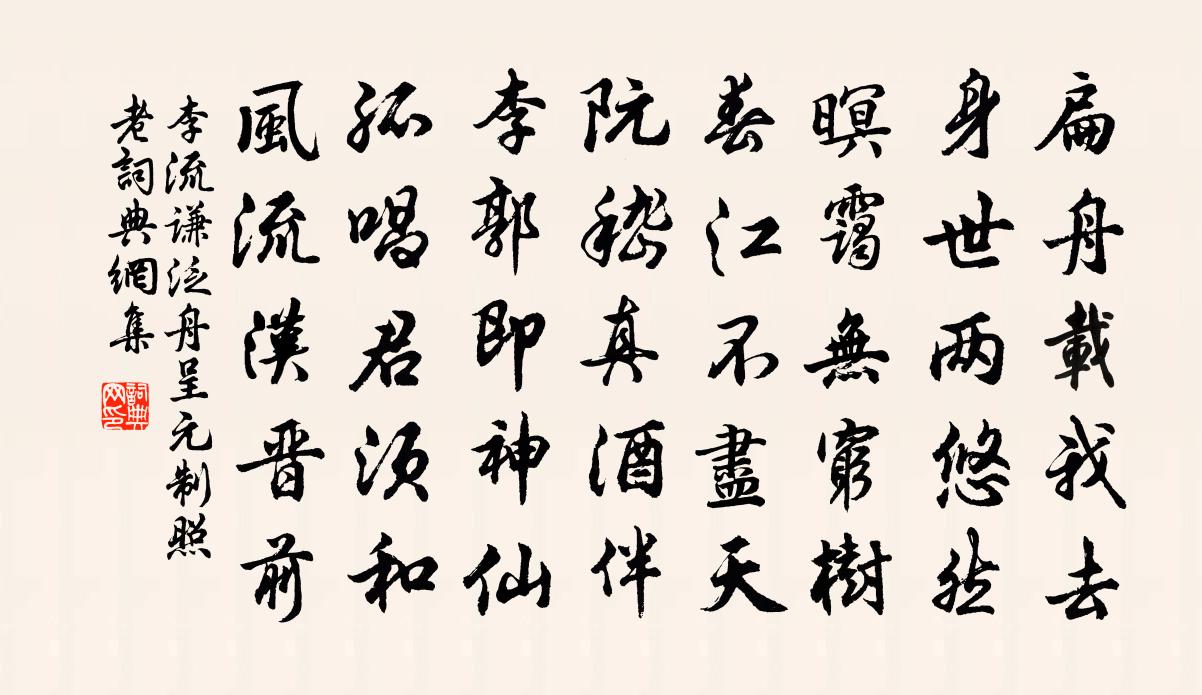 扁舟載我去
身世两悠然
暝靄無窮樹
春江不盡天
阮嵇真酒伴
李郭即神仙
孤唱君須和
風流漢晋前
李流謙泛舟呈元制照
老詞典網集
詞典网印